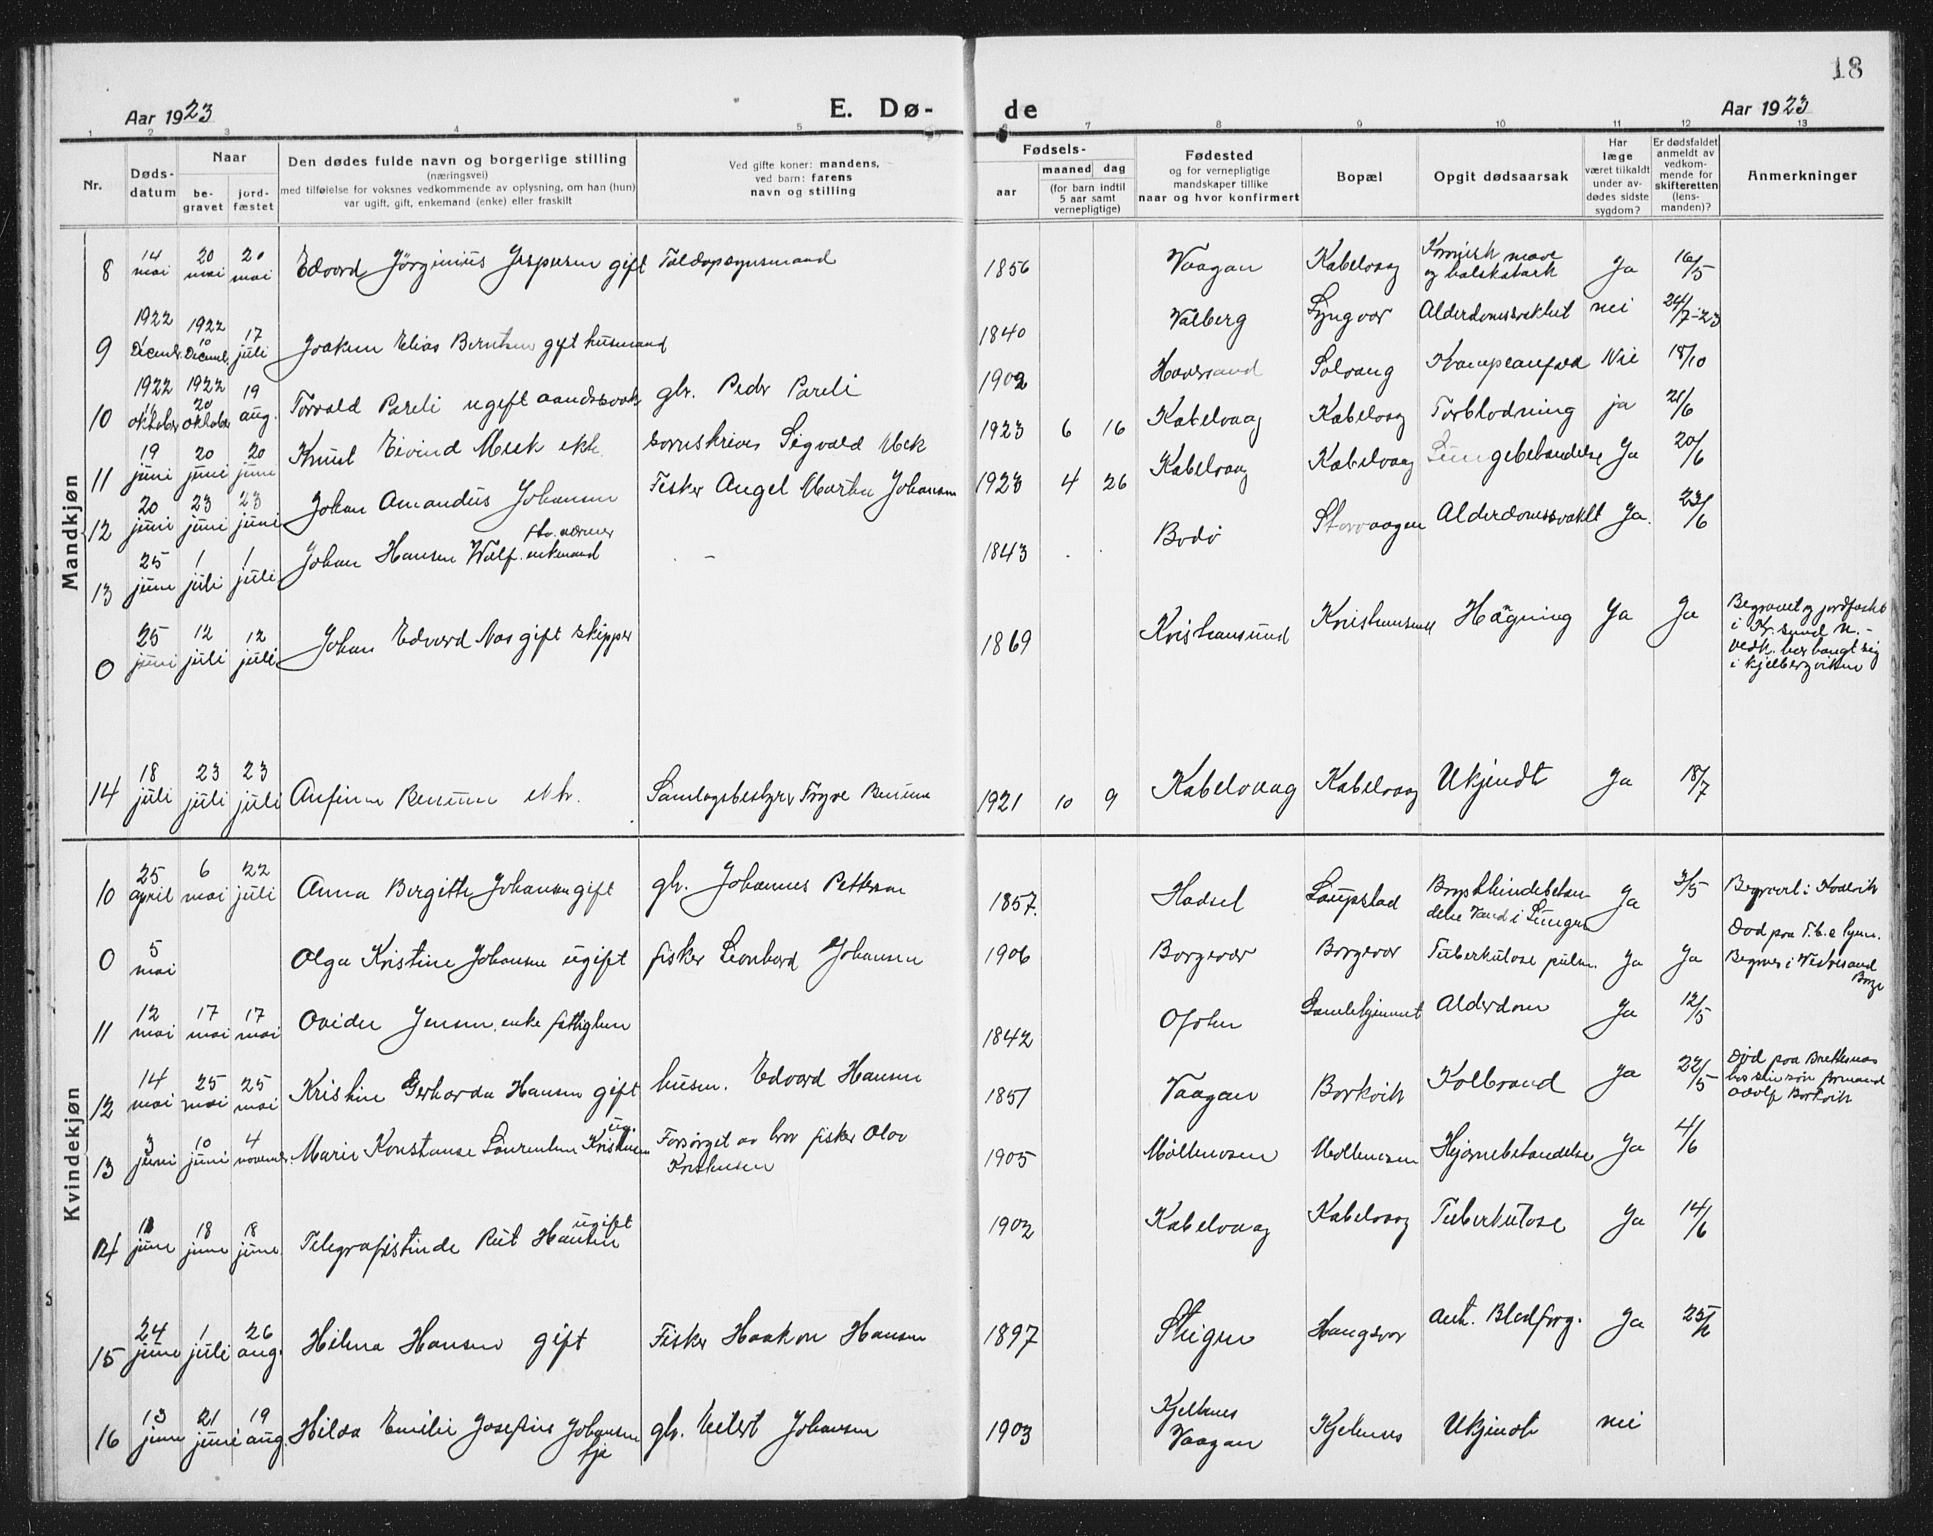 18
Aar 1923 E. Dø- de Aar 1923
1 2 3 4 5 6 7 8 9 10 11 12 13
Nr.
Døds-
datum
Naar
be-
gravet
jord-
fæstet
Den dødes fulde navn og borgerlige stilling
(næringsvei)
med tilføielse for voksnes vedkommende av oplysning, om han (hun)
var ugift, gift, enkemand (enke) eller fraskilt
Ved gifte koner: mandens,
ved barn: farens
navn og stilling
Fødsels-
aar
maaned dag
(for barn indtil
5 aar samt
vernepligtige)
Fødested
og for vernepligtige
mandskaper tillike
naar og hvor konfirmert
Bopæl
Opgit dødsaarsak
Har
læge
været tilkaldt
under av-
dødes sidste
sygdom?
Er dødsfaldet
anmeldt av
vedkom-
mende for
skifteretten
(lens-
manden)?
Anmerkninger
Mandkjøn
8 14 mai 20 mai 20 mai Edvard Jörginius Jespersen gift Toldopsynsmand 1856 Vaagan Kabelvaag Kronisk mave og halskatarh Ja 16/5
9 1922 1 Decemb. 1922 10 Decemb. 17 juli Joakim Elias Berntsen gift husmand 1840 Valberg Lyngvær Alderdomssvakhet nei 24/7-23
10 1922 11 oktober 1922 20 oktober 19 aug. Torvald Pareli ugift aandssvak gbr. Peder Pareli 1902 Haversand Solvang Krampeanfald Nei 18/10
11 19 juni 20 juni 20 juni Knut Eivind Mek ekte. Sigvald Mek 1923 6 16 Kabelvaag Kabelvaag Forblødning ja 21/6
12 20 juni 23 juni 23 juni Johan Amandus Johansen Fisker Angel Martin Johansen 1923 4 26 Kabelvaag Kabelvaag Lungebetændelse Ja 20/6
13 25 juni 1 juli 1 juli Johan Hansen Wulf. enkemand - 1843 . . Bodö Storvaagen Alderdomssvakht Ja. 23/6
0 25 juni 12 juli 12 juli Johan Edvard Nas gift skipper 1869 Kristiansund Kristiansund Hængning Ja Ja Begravet og jordfæstet
i Kr.sund N. -
vedk. har hængt sig
i Kjelbergviken
14 18 juli 23 juli 23 juli Anfinn Benum ekte. Samlagsbestyrer Trygve Benum 1921 10 9 Kabelvaag Kabelvaag Ukjendt Ja 18/7
Kvindekjøn
10 25 april 6 mai 22 juli Anna Bergitte Johansen gift gbr. Johannes Pettersen 1857. Hadsel Laupstad Brysthindebetæn-
delse Vand i Lungen Ja 3/5 Begravet i
0 5 mai Olga Kristine Johansen ugift fisker Leonhard Johansen 1906 Borgevær Borgevær Tuberkulose pulm. Ja Ja Død paa T.b.c
Begraves i
Borge
11 12 mai 17 mai 17 mai Ovidie Jensen, enke fattiglem 1842 Ofoten Gamlehjemmet Alderdom Ja 12/5
12 14 mai 25 mai 25 mai Kristine Gerharda Hansen gift husm. Edvard Hansen 1851 Vaagan Borkvik Koldbrand Ja 22/5 Död paa Brettesnæs
hos sin sön formand
Adolf Borkvik
13 3 juni 10 juni 4 novemb. Marie Konstanse Laurentine Kristiansen ug. Forsørget av bror fisker Olav
Kristiansen 1905 Möllnosen Möllnosen Hjernebetændelse Ja 4/6
14 11 juni 18 juni 18 juni Telegrafistinde Rut Hansen ugift 1902 Kabelvaag Kabelvaag Tuberkulose Ja 14/6
15 24 juni 1 juli 26 aug. Helena Hansen gift Fisker Haakon Hansen 1897 Steigen Hangsvær Blodforg. Ja 25/6
16 13 juni 21 juni 19 aug. Hilda Emilie Josefine Johansen gbr. Eilert Johansen 1903 Kjelnes
Vaagan Kjelnes Ukjendt nei